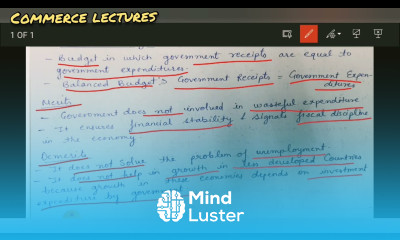 COMMERCE LECTURES
1 OF 1
- Budget in which government receipts are equal to
government expenditures.
- Balanced Budget's Government Receipts = Government Expen-
ditures
Merits
- Government does not involved in wasteful expenditure
- It ensures financial stability & signals fiscal discipline
in the economy
Demerits
- It does not solve the problem of unemployment.
- It does not help in growth in less developed Countries
because growth in these economies depends on investment
expenditure by government
Mind
Luster